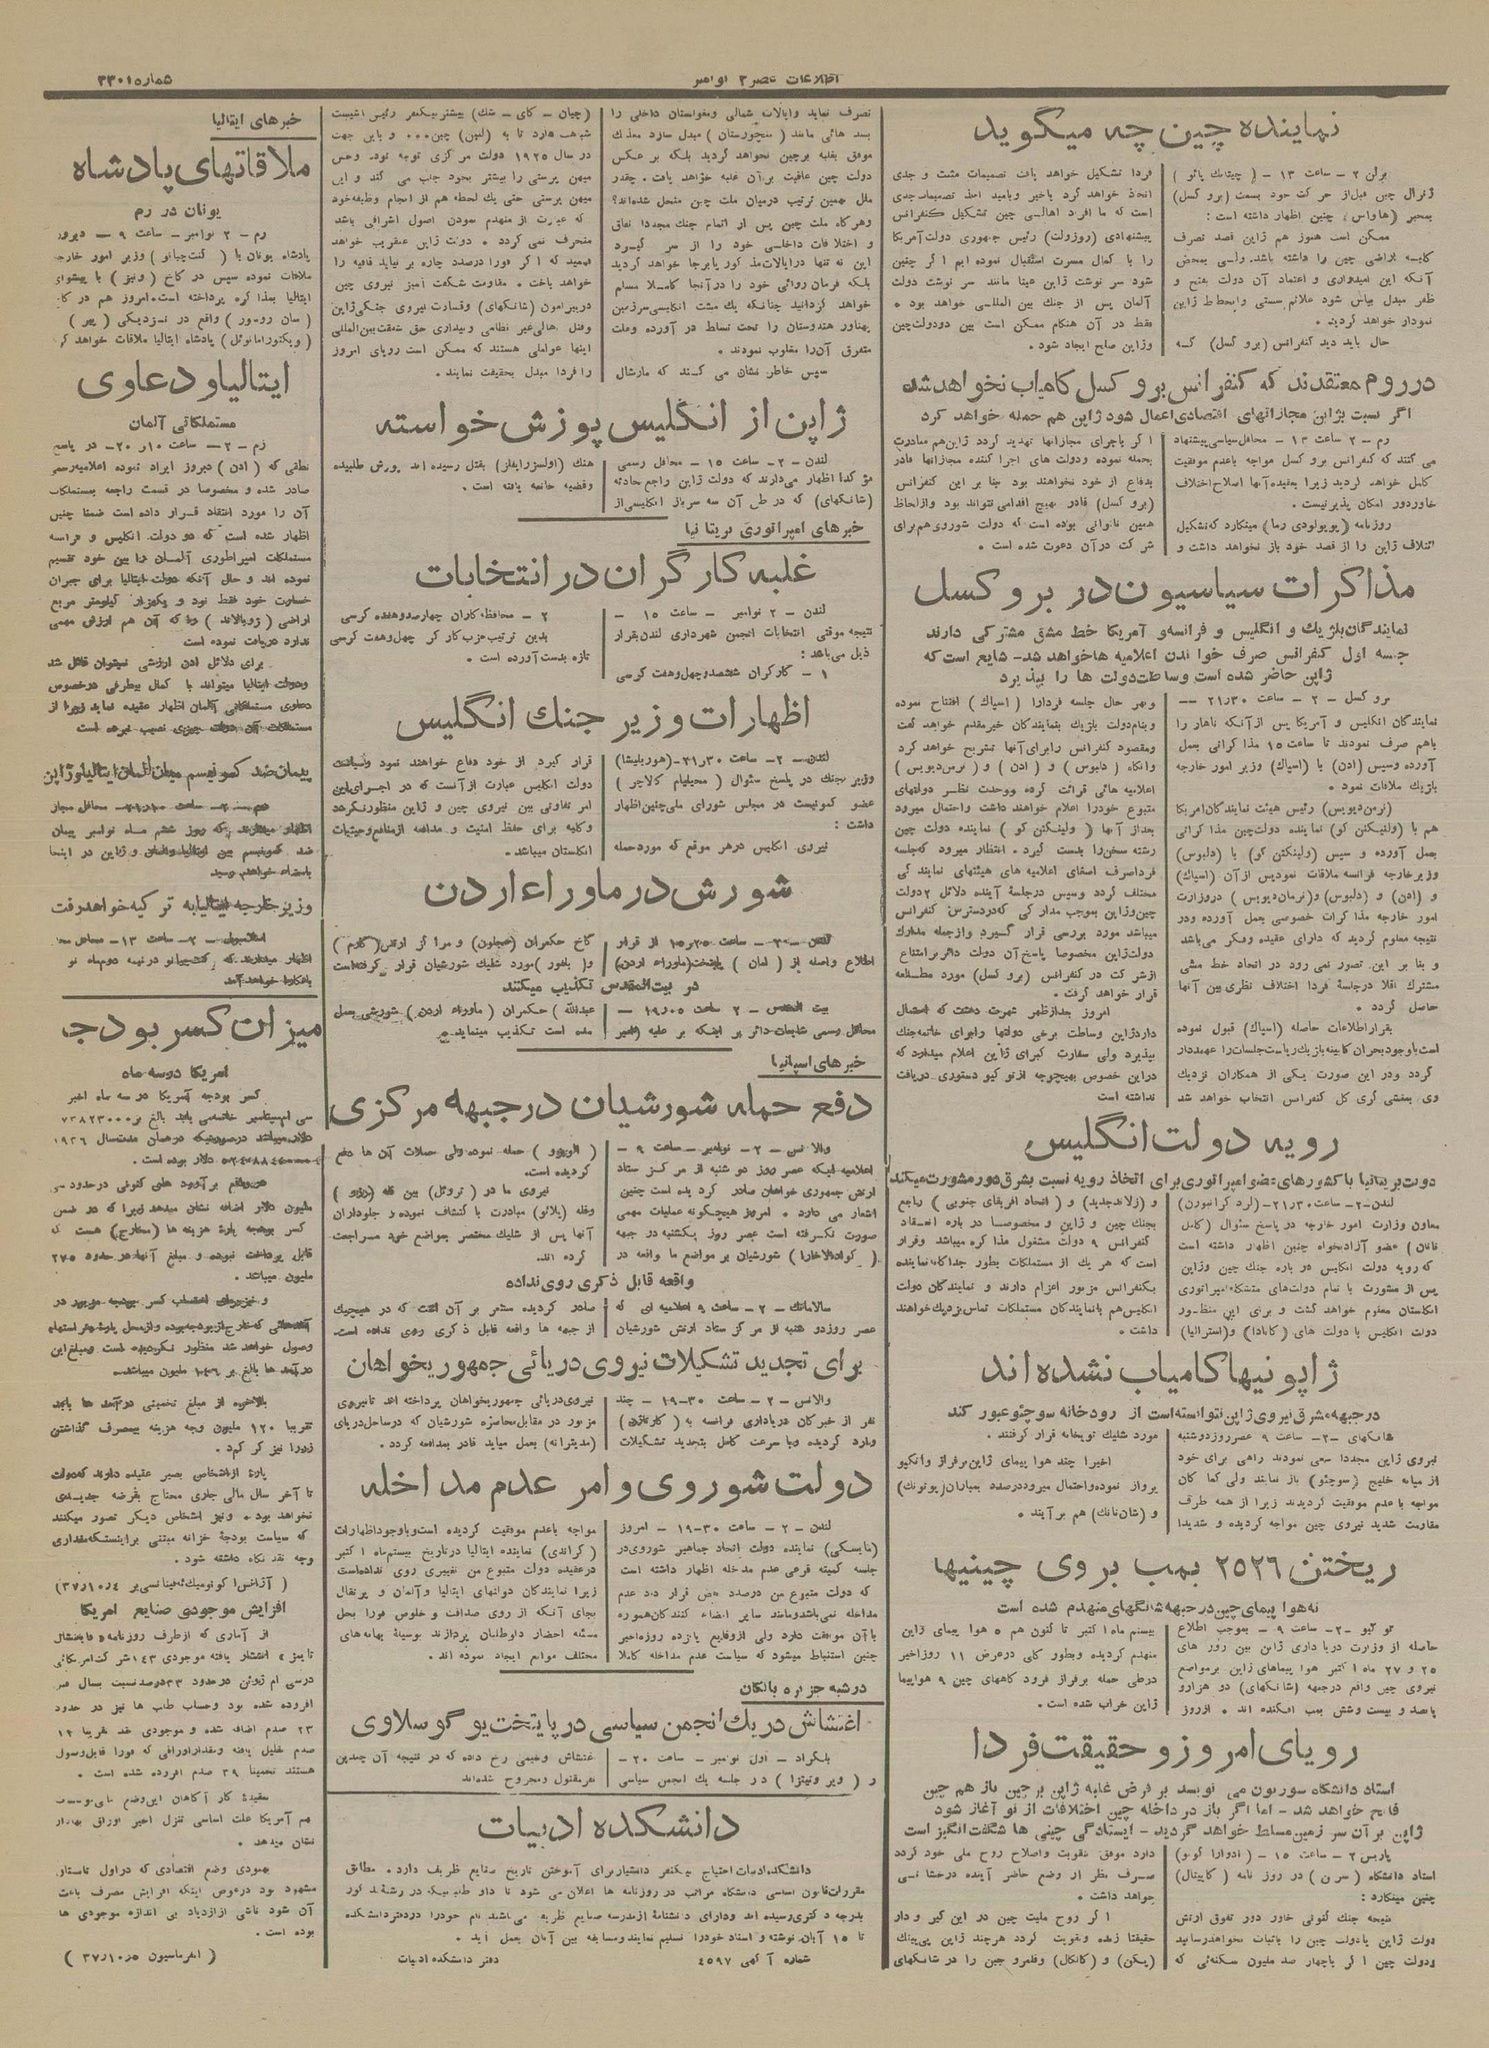 شماره ۳۳۰۱
اطلاعات عصر ۳ نوامبر
نماینده چین چه میگوید
برلن ۲ – ساعت ۱۳ –
ژنرال چین قبل از حرکت خود بسمت (بروکسل)
بمخبر (هاواس) چنین اظهار داشته است :
ممکن است هنوز هم ژاپن قصد تصرف
کلیه اراضی چین را داشته باشد. ولی بمحض
آنکه این امیدواری و اعتماد آن دولت بفتح و
ظفر مبدل بیأس شود علائم سستی وانحطاط ژاپن
نمودار خواهد گردید.
حال باید دید کنفرانس (بروکسل) که
فردا تشکیل خواهد یافت تصمیمات مثبت و جدی
اتخاذ خواهد کرد یاخیر
است که ما افراد اهالی چین تشکیل کنفرانس
پیشنهادی (روزولت) رئیس جمهوری دولت آمریکا
را با کمال مسرت استقبال نموده ایم اگر چنین
شود سر نوشت ژاپن عیناً مانند سر نوشت دولت
آلمان پس از جنگ بین المللی خواهد بود .
فقط در آن هنگام ممکن است بین دودولت چین
وژاپن صلح ایجاد شود .
در روم معتقدند که کنفرانس بروکسل کامیاب نخواهد شد
اگر نسبت بژاپن مجازاتهای اقتصادی اعمال شود ژاپن هم حمله خواهد کرد
رم – ۲ ساعت ۱۳ – محافل سیاسی پیشنهاد
می کنند که کنفرانس بروکسل مواجه باعدم موفقیت
کامل خواهد گردید زیرا بعقیده آنها اصلاح اختلاف
خاوردور امکان پذیر نیست .
ائتلاف ژاپن را از قصد خود باز نخواهد داشت و
اگر باجرای مجازاتها تهدید گردد ژاپن هم مبادرت
بحمله نموده ودولت های اجرا کننده مجازاتها قادر
بدفاع از خود نخواهند بود بنا بر این کنفرانس
(بروکسل) قادر بهیچ اقدامی نتواند بود وازلحاظ
همین ناتوانی بوده است که دولت شوروی هم برای
شرکت درآن دعوت شده است .
مذاکرات سیاسیون در بروکسل
نمایندگان بلژیک و انگلیس و فرانسه و آمریکا خط مشق مشترکی دارند
جلسه اول کنفرانس صرف خواندن اعلامیه ها خواهد شد – شایع است که
ژاپن حاضر شده است وساطت دولت ها را بپذیرد
بروکسل – ۲ – ساعت ۲۱٫۳۰ –
نمایندگان انگلیس و آمریکا پس ازآنکه ناهار را
باهم صرف نمودند تا ساعت ۱۵ مذاکراتی بعمل
آورده وسپس (ادن) با (اسپاک) وزیر امور خارجه
بلژیک ملاقات نمود .
(نرمن دیویس) رئیس هیئت نمایندگان امریکا
هم با (ولینکتن کو) نماینده دولت چین مذاکراتی
بعمل آورده و سپس (ولینکتن کو) با (دلبوس)
وزیر خارجه فرانسه ملاقات نمود پس از آن (اسپاک)
و (ادن) و (دلبوس) و (نرمان دیویس) دروزارت
امور خارجه مذاکرات خصوصی بعمل آورده ودر
نتیجه معلوم گردید که دارای عقیده وفکر می باشد
و بنا بر این تصور نمی رود در اتحاد خط مشی
مشترک اقلا درجلسهٔ فردا اختلاف نظری بین آنها
حاصل گردد .
بقراراطلاعات حاصله (اسپاک) قبول نموده
است باوجود بحران کابینه بلژیک ریاست جلسات را عهده دار
گردد ودر این صورت یکی از همکاران نزدیک
وی بمنشی گری کل کنفرانس انتخاب خواهد شد
وبهر حال جلسه فردارا (اسپاک) افتتاح نموده
وبنام دولت بلژیک بنمایندگان خیرمقدم خواهد گفت
ومقصود کنفرانس رابرای آنها تشریح خواهد کرد
وآنگاه (دلبوس) و (ادن) و (نرمن دیویس)
اعلامیه هائی قرائت کرده ووحدت نظر دولتهای
متبوع خودرا اعلام خواهند داشت واحتمال میرود
بعداز آنها (ولینکتن کو) نماینده دولت چین
رشته سخن را بدست گیرد . انتظار میرود که جلسه
فردا صرف اصغای اعلامیه های هیئتهای نمایندگی
مختلف گردد وسپس درجلسهٔ آینده دلائل ۲ دولت
چین وژاپن بموجب مدارکی که دردسترس کنفرانس
میباشد مورد بررسی قرار گیرد وازجمله مدارک
دولت ژاپن مخصوصاً پاسخ آن دولت دائر بر امتناع
ازشرکت در کنفرانس (بروکسل) مورد مطالعه
قرار خواهد گرفت .
امروز بعدازظهر شهرت داشت که احتمال
دارد ژاپن وساطت برخی دولتها رابرای خاتمه جنگ
بپذیرد ولی سفارت کبرای ژاپن اعلام میدارد که
دراین خصوص بهیچوجه ازتوکیو دستوری دریافت
نداشته است
رویه دولت انگلیس
دولت بریتانیا با کشورهای عضو امپراتوری برای اتخاذ رویه نسبت بشرق دور مشورت میکند
لندن – ۲ – ساعت ۲۱٫۳۰ – (لرد کرانبورن)
معاون وزارت امور خارجه در پاسخ سئوال
عضو آزادیخواه چنین اظهار داشته است
که رویه دولت انگلیس در باره جنگ چین وژاپن
پس از مشورت با تمام دولت‌های متشکله امپراتوری
انگلستان معلوم خواهد گشت و برای این منظور
دولت انگلیس با دولت های (کانادا) و (استرالیا)
و (زلاندجدید) و (اتحاد افریقای جنوبی) راجع
بجنگ چین و ژاپن و مخصوصاً در باره انعقاد
کنفرانس ۹ دولت مشغول مذاکره میباشد وقرار
است که هر یک از مستملکات بطور جداگانه نماینده
بکنفرانس مزبور اعزام دارند و نمایندگان دولت
انگلیس هم بانمایندگان مستملکات تماس نزدیک خواهند
داشت .
ژاپونیها کامیاب نشده اند
درجبهه مشرق نیروی ژاپن نتوانسته است از رودخانه سوچئو عبور کند
شانگهای – ۲ – ساعت ۹ عصر روز دوشنبه
نیروی ژاپن مجدداً سعی نمودند راهی برای خود
از میانه خلیج (سوچئو) باز نمایند ولی کما کان
مواجه با عدم موفقیت گردیدند زیرا از همه طرف
مقاومت شدید نیروی چین مواجه گردیده و شدیداً
مورد شلیک توپخانه قرار گرفتند .
اخیراً چند هوا پیمای ژاپن برفراز وانکپو
پرواز نموده واحتمال میرود درصدد بمباران (پوتونگ)
و (شان تانگ) هم برآیند .
ریختن ۲۵۲۶ بمب بروی چینیها
نه هوا پیمای چین در جبهه شانگهای منهدم شده است
توکیو – ۲ – ساعت ۹ – بموجب اطلاع
حاصله از وزارت دریاداری ژاپن بین روز های
۲۵ و ۲۷ ماه اکتبر هوا پیماهای ژاپن برمواضع
نیروی چین واقع درجبهه (شانگهای) دو هزارو
پانصد و بیست وشش بمب افکنده اند . ازروز
بیستم ماه اکتبر تا کنون هم ۵ هوا پیمای ژاپن
منهدم گردیده وبطور کلی درعرض ۱۱ روزاخیر
درطی حمله برفراز فرود گاههای چین ۹ هواپیما
ژاپن خراب شده است .
رویای امروز و حقیقت فردا
استاد دانشگاه سوربون می نویسد بر فرض غلبه ژاپن بر چین باز هم چین
فاتح خواهد شد – اما اگر باز در داخله چین اختلافات از نو آغاز شود
ژاپن بر آن سر زمین مسلط خواهد گردید – ایستادگی چینی ها شگفت انگیز است
پاریس ۲ – ساعت ۱۵ –
استاد دانشگاه
چنین مینگارد :
نتیجه جنگ کنونی خاور دور تفوق ارتش
دولت ژاپن یادولت چین را باثبات نخواهد رسانید
ودولت چین اگر باچهار صد ملیون سکنه ئی که
دارد موفق بتقویت واصلاح روح ملی خود گردد
صرف نظر از وضع حاضر آینده درخشانی
خواهد داشت .
اگر روح ملیت چین در این گیر و دار
حقیقتاً زنده وتقویت گردد هرچند ژاپن پی پینگ
(پکن) و (کانکال) وقلمرو چین را در شانگهای
تصرف نماید وایالات شمالی ومغولستان داخلی را
بسد هائی مانند (منچورستان) مبدل سازد معذلک
موفق بغلبه برچین نخواهد گردید بلکه بر عکس
دولت چین عاقبت برآن غلبه خواهد یافت . چقدر
ملل بهمین ترتیب درمیان ملت چین منحل شده‌اند؟
وهرگاه ملت چین پس از اتمام جنگ مجدداً نفاق
و اختلافات داخلی خود را از سر گیرد
این نه تنها درایالات مذکور پابرجا خواهد گردید
بلکه فرمان روائی خود را درآنجا کاملا مسلم
خواهد گردانید چنانکه یک مشت انگلیسی سرزمین
پهناور هندوستان را تحت تسلط در آورده وملت
متفرق آن را مغلوب نمودند .
سپس خاطر نشان می کند که مارشال
(چیان – کای – شک) بیشتر بیکنفر رئیس
شباهت دارد تا به (لنین) چین . . . و باین جهت
در سال ۱۹۲۵ دولت مرکزی توجه نمود وحس
میهن پرستی را بیشتر بخود جلب می کند و این
میهن پرستی حتی یک لحظه هم از انجام وظیفه خود
که عبارت از منهدم نمودن اصول اشرافی باشد
منحرف نمی گردد . دولت ژاپن عنقریب خواهد
فهمید که اگر فوراً درصدد چاره بر نیاید قافیه را
خواهد باخت . مقاومت شگفت آمیز نیروی چین
درپیرامون (شانگهای) وقساوت نیروی جنگی ژاپن
وقتل اهالی غیر نظامی وبیداری حق شفقت بین المللی
اینها عواملی هستند که ممکن است رویای امروز
را فردا مبدل بحقیقت نمایند .
ژاپن از انگلیس پوزش خواسته
لندن – ۲ – ساعت ۱۵ – محافل رسمی
مؤکداً اظهار می‌دارند که دولت ژاپن راجع بحادثه
(شانگهای) که در طی آن سه سرباز انگلیسی از
هنگ (اولسترایفلز) بقتل رسیده اند پوزش طلبیده
وقضیه خاتمه یافته است .
خبر های امپراتوری بریتانیا
غلبه کارگران در انتخابات
لندن – ۲ نوامبر – ساعت ۱۵ –
نتیجه موقتی انتخابات انجمن شهرداری لندن بقرار
ذیل می‌باشد :
۱ – کارگران ششصدوچهل وهفت کرسی
۲ – محافظه کاران چهارصدوهفده کرسی
بدین ترتیب حزب کارگر چهل وهفت کرسی
تازه بدست آورده است .
اظهارات وزیر جنگ انگلیس
لندن – ۲ – ساعت ۲۱٫۳۰ – (هوربلیشا)
وزیر جنگ در پاسخ سئوال (مجیلیام کلاچر)
عضو کمونیست در مجلس شورای ملی چنین اظهار
داشت :
نیروی انگلیس درهر موقع که مورد حمله
قرار گیرد از خود دفاع خواهند نمود وسیاست
دولت انگلیس عبارت ازآنست که در اجرای این
امر تفاوتی بین نیروی چین و ژاپن منظور نگردد
وکلیه برای حفظ امنیت و مدافعه ازمنافع وحیثیات
انگلستان میباشد .
شورش در ماوراء اردن
لندن – ۲ – ساعت ۱۵٫۲۵ از قرار
اطلاع واصله از (امان) پایتخت (ماوراء اردن)
کاخ حکمران (عجلون) و مراکز ارتش
مورد شلیک شورشیان قرار گرفته است
در بیت المقدس تکذیب میکنند
بیت المقدس – ۲ – ساعت ۱۹٫۰۵ –
محافل رسمی شایعات دائر بر اینکه بر علیه (امیر
عبدالله) حکمران (ماوراء اردن) شورشی بعمل
آمده است تکذیب مینمایند .
خبر های اسپانیا
دفع حمله شورشیان در جبهه مرکزی
والانس – ۲ – نوامبر – ساعت ۹ –
اعلامیه ایکه عصر روز دوشنبه از مرکز ستاد
ارتش جمهوری خواهان صادر گردیده است چنین
اشعار می دارد . امروز هیچگونه عملیات مهمی
صورت نگرفته است عصر روز یکشنبه در جبهه
(کوادالاخارا) شورشیان بر مواضع ما واقعه در
حمله نموده ولی حملات آن ها دفع
گردیده است .
نیروی ما در (تروئل) بین قله
مبادرت با کتشاف نموده و جلوداران
آنها پس از شلیک مختصر بمواضع خود مراجعت
کرده اند .
واقعه قابل ذکری روی نداده
سالامانک – ۲ – ساعت ۹ اعلامیه ای که
عصر روزدوشنبه از مرکز ستاد ارتش شورشیان
صادر گردیده مشعر بر آن است که در هیچیک
از جبهه ها واقعه قابل ذکری روی نداده است.
برای تجدید تشکیلات نیروی دریائی جمهوریخواهان
والانس – ۲ – ساعت ۱۹٫۳۰ – چند
نفر از خبرگان دریاداری فرانسه به (کارتاژن)
وارد گردیده وبا سرعت کامل بتجدید تشکیلات
نیروی دریائی جمهوریخواهان پرداخته اند تا نیروی
مزبور در مقابل محاصره شورشیان که در ساحل دریای
(مدیترانه) بعمل میاید قادر بمدافعه گردد .
دولت شوروی و امر عدم مداخله
لندن – ۲ – ساعت ۱۹٫۳۰ – امروز
(مایسکی) نماینده دولت اتحاد جماهیر شوروی در
جلسه کمیته فرعی عدم مداخله اظهار داشته است
که دولت متبوع من درصدد نقض قرار داد عدم
مداخله نمی باشد ومانند سایر امضاء کنندگان همواره
با آن موافقت دارد ولی ازوقایع پانزده روزه اخیر
چنین استنباط میشود که سیاست عدم مداخله کاملا
مواجه باعدم موفقیت گردیده است وباوجود اظهارات
(گراندی) نماینده ایتالیا درتاریخ بیستم ماه اکتبر
درعقیده دولت متبوع من تغییری روی نداده است
زیرا نمایندگان دولتهای ایتالیا وآلمان و پرتقال
بجای آنکه از روی صداقت و خلوص فوراً بحل
مسئله احضار داوطلبان پردازند بوسیلهٔ بهانه های
مختلف موانع ایجاد نموده اند .
در شبه جزیره بالکان
اغتشاش در یک انجمن سیاسی در پایتخت یوگوسلاوی
بلگراد – اول نوامبر – ساعت ۲۰ –
در جلسه یک انجمن سیاسی
اغتشاش وخیمی رخ داده که در نتیجه آن چندین
نفر مقتول ومجروح شده‌اند
دانشکده ادبیات
دانشکده ادبیات احتیاج بیکنفر دانشیار برای آموختن تاریخ صنایع ظریف دارد . مطابق
مقررات قانون اساسی دانشگاه مراتب در روزنامه ها اعلان می شود تا داوطلبانیکه در رشته مذکور
بدرجه دکتری رسیده اند ودارای دانشنامهٔ از مدرسه صنایع ظریفه می باشند نام خود را در دفتر دانشکده
تا ۱۵ آبان نوشته و اسناد خود را تسلیم نمایند ومسابقه بین آنان بعمل آید .
شماره آگهی ۴۵۹۷
دفتر دانشکده ادبیات
خبر های ایتالیا
ملاقاتهای پادشاه
یونان در رم
رم – ۲ نوامبر – ساعت ۹ –
پادشاه یونان با (کنت چیانو) وزیر امور
ملاقات نموده سپس در کاخ (ونیز) با پیشوای
ایتالیا بمذاکره پرداخته است . امروز هم در
واقع در نزدیکی (پیز)
(ویکتورامانوئل) پادشاه ایتالیا ملاقات خواهد
ایتالیا و دعاوی
مستملکاتی آلمان
رم – ۲ – ساعت ۲۰٫۱۰ – در پاسخ
نطقی که (ادن) دیروز ایراد نموده اعلامیه رسمی
صادر شده و مخصوصاً در قسمت راجعه بمستملکات
آن را مورد انتقاد قرار داده است ضمناً چنین
اظهار شده است که دو دولت انگلیس و فرانسه
مستملکات امپراطوری آلمان را بین خود تقسیم
نموده اند و حال آنکه دولت ایتالیا برای جبران
خسارت خود فقط نود و یکهزار کیلومتر مربع
اراضی (ژوبالاند) را که آن هم ارزش مهمی
ندارد دریافت نموده است
برای دلائل ادن ارزشی نمیتوان قائل شد
ودولت ایتالیا میتواند با کمال بیطرفی درخصوص
دعاوی مستملکاتی آلمان اظهار عقیده نماید زیرا از
مستملکات آن دولت چیزی نصیب نبرده است
پیمان ضد کمونیسم میان آلمان ایتالیا و ژاپن
محافل مجاز
اظهار میدارند که روز ششم ماه نوامبر پیمان
ضد کمونیسم بین ایتالیا و آلمان و ژاپن در اینجا
بامضاء خواهد رسید
وزیر خارجه ایتالیا به ترکیه خواهد رفت
استامبول – ۲ – ساعت ۱۳ –
اظهار میدارند که کنت چیانو در نیمه دوم ماه
بآنکارا خواهد آمد
میزان کسر بودجه
امریکا در سه ماه
کسر بودجه آمریکا در سه ماه اخیر
۷۳۸۲۳۰۰۰
دلار میباشد در صورتیکه در همان مدت سال ۱۹۳۶
دلار بوده است .
ملیون دلار اضافه نشان میدهد زیرا که در ضمن
کسر بودجه پارهٔ هزینه ها (مخارج) هست که
قابل پرداخت نبوده و مبلغ آنها در حدود ۲۷۵
ملیون میباشد .
وصول خواهد شد منظور نگردیده است ومبلغ این
بالاخره از مبلغ تخمینی درآمد ها باید
تقریباً ۱۲۰ ملیون وجه هزینه بیمصرف گذاشتن
زیرا نیز کم کرد .
پارهٔ ازاشخاص بصیر عقیده دارند که دولت
تا آخر سال مالی جاری محتاج بقرضه جدیدی
نخواهد بود . ونیز اشخاص دیگر تصور میکنند
که سیاست بودجهٔ خزانه مبتنی براینستکه مقداری
وجه نقد نگاه داشته شود .
(آژانس اکونومیک ئه فینانسی بر ۳۷٫۱۰٫۴)
افزایش موجودی صنایع امریکا
از آماری که ازطرف روزنامه فاینانشال
تایمز انتشار یافته موجودی ۱۴۳ شرکت امریکائی
درسی ام ژوئن درحدود ۳۳ درصد نسبت بسال قبل
افزوده شده بود وحساب طلب ها نیز در حدود
۲۳ صدم اضافه شده و موجودی نقد تقریباً ۱۲
صدم تقلیل یافته ومقدار اوراقی که فوراً قابل وصول
هستند تخمیناً ۲۹ صدم افزوده شده است .
هم آمریکا علت اساسی تنزل اخیر اوراق
نشان میدهد .
بهبودی وضع اقتصادی که دراول تابستان
مشهود بود درعوض اینکه افزایش مصرف باعث
آن شود ناشی ازازدیاد بی اندازه موجودی ها
بوده است .
(انفرماسیون ۳۷٫۱۰٫۵)